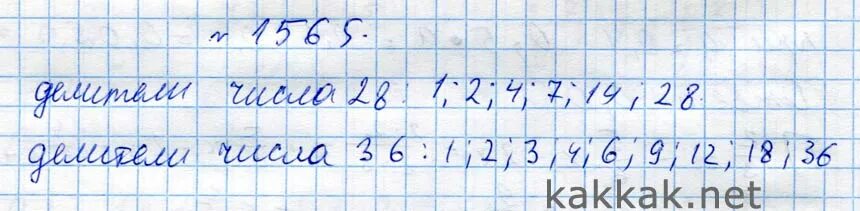 № 1565.
делители числа 28: 1; 2; 4; 7; 14; 28.
делители числа 36: 1; 2; 3; 4; 6; 9; 12; 18; 36
kakkak.net